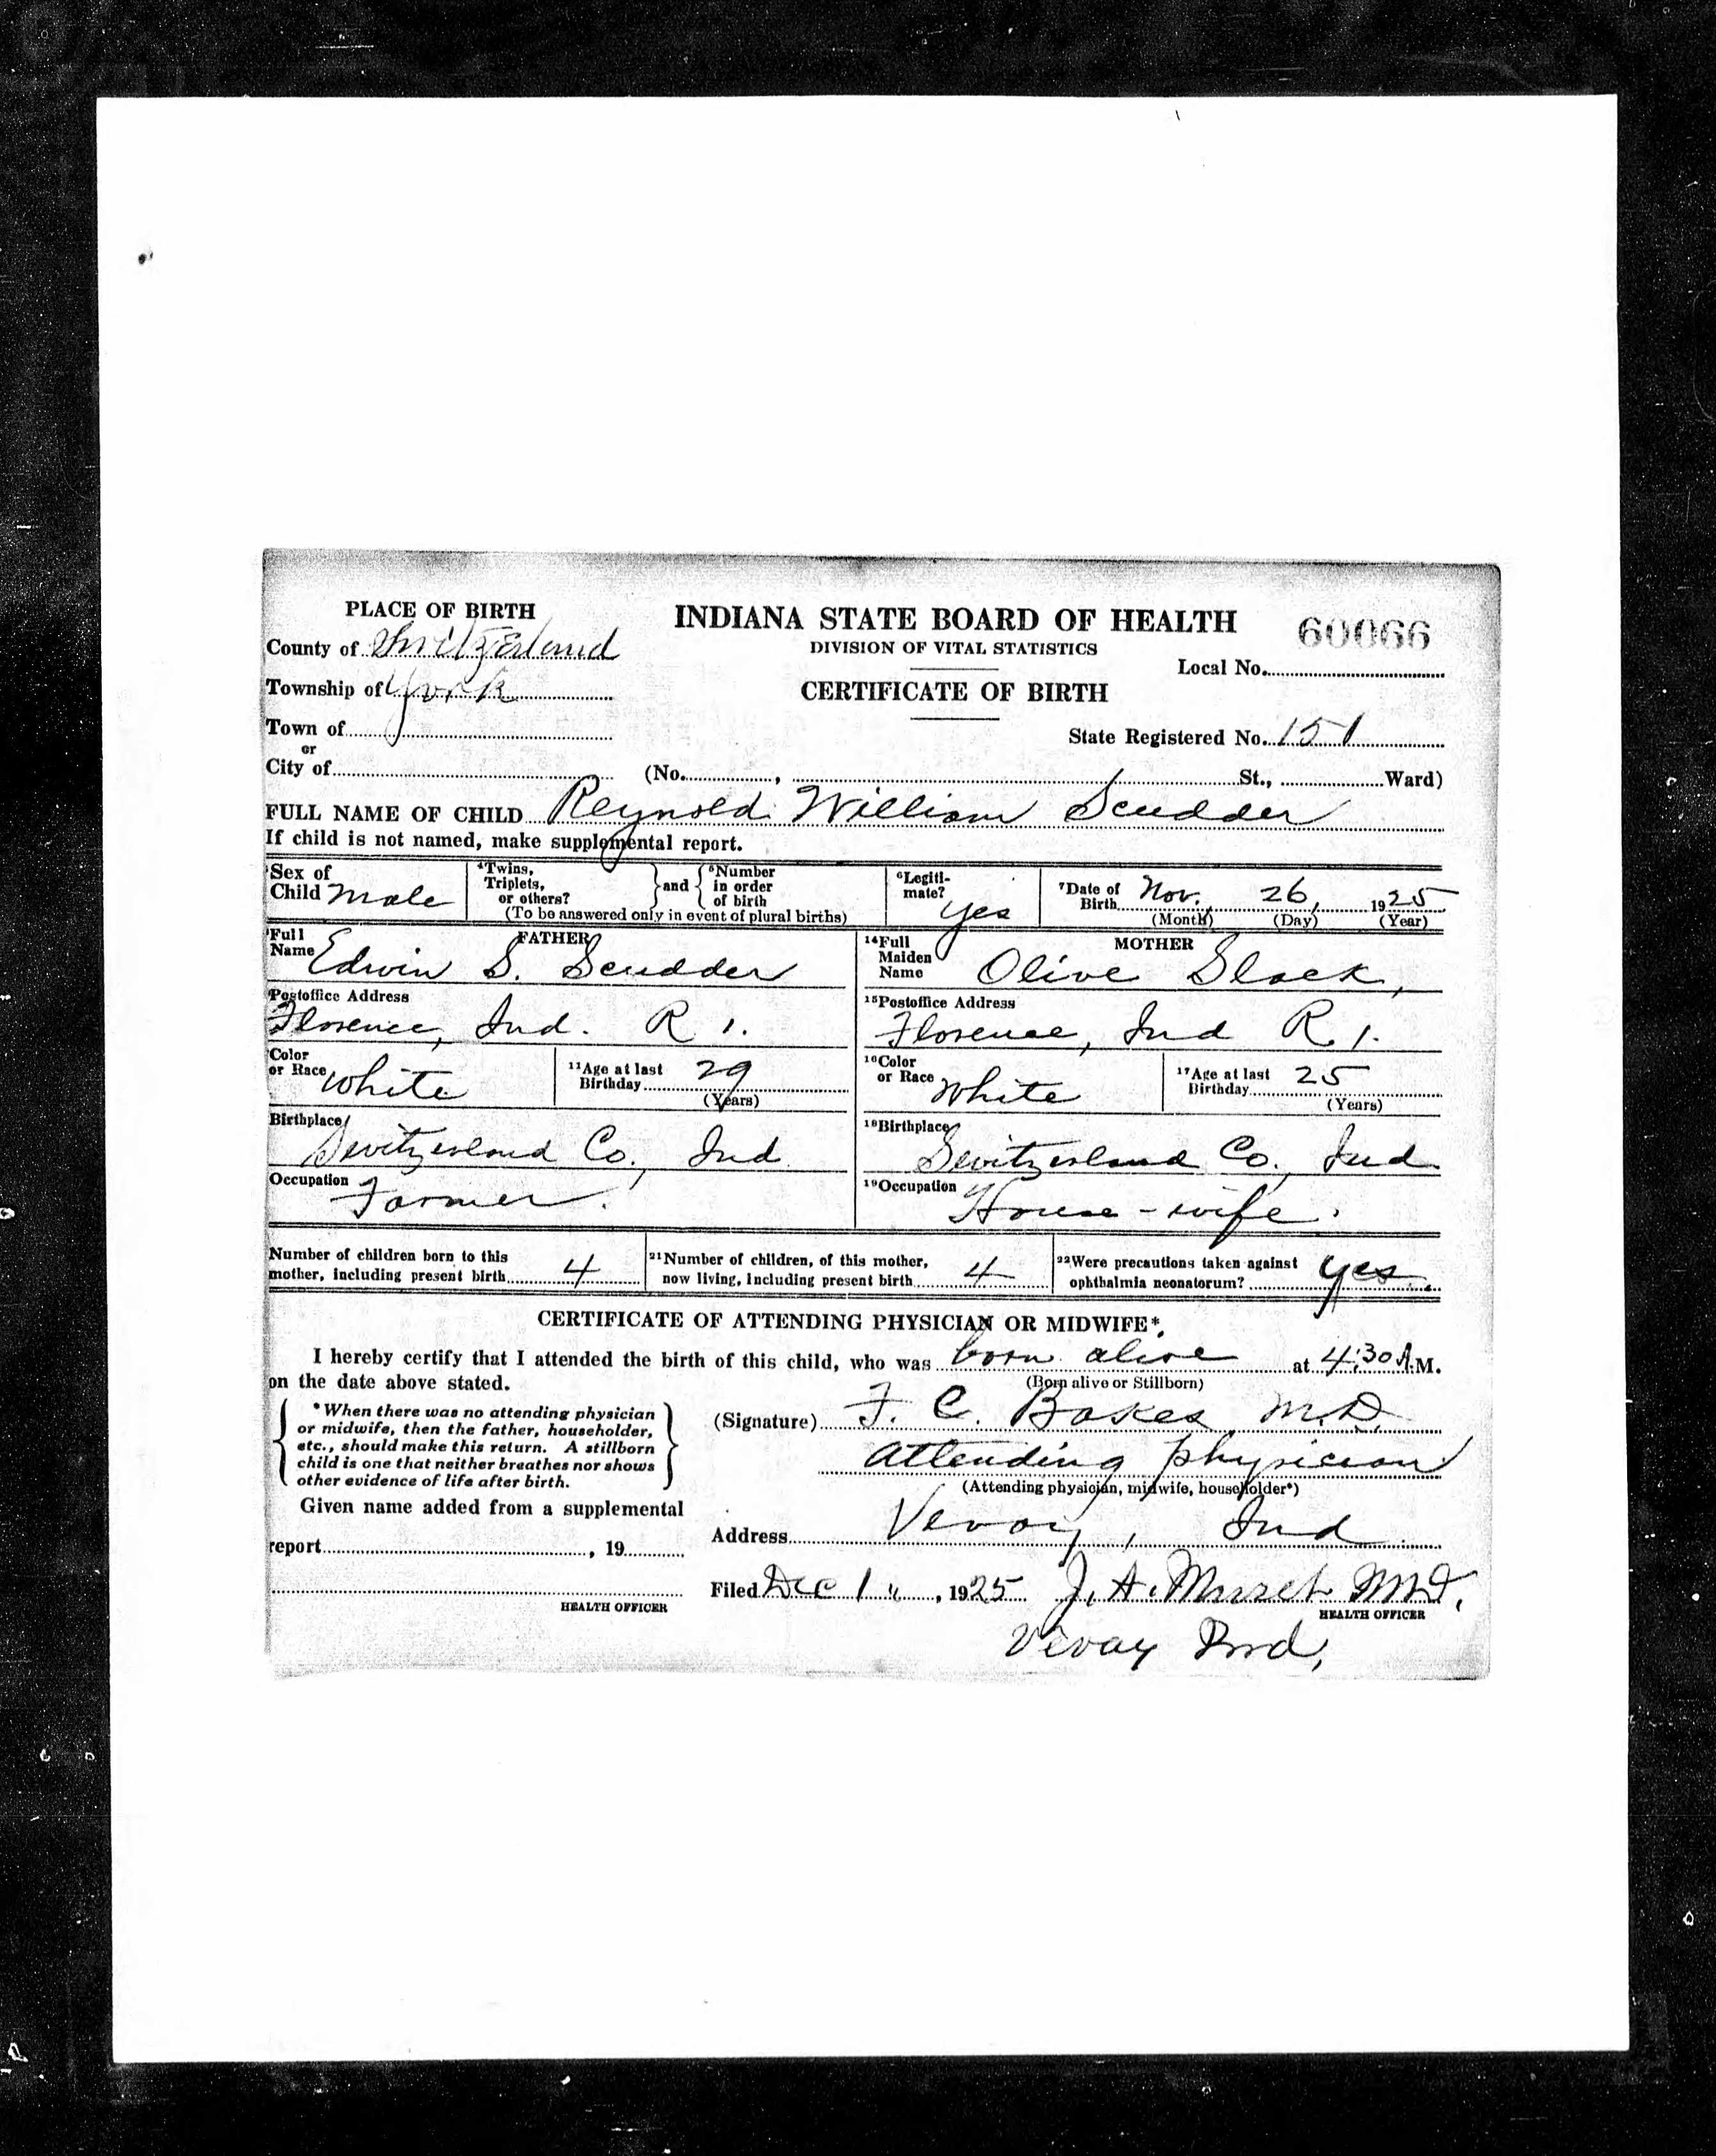 PLACE OF BIRTH
INDIANA STATE BOARD OF HEALTH
60066
County of Switzerland
DIVISION OF VITAL STATISTICS
Local No.
Township of York
CERTIFICATE OF BIRTH
Town of
or
State Registered No. 151
City of (No. , St., Ward)
FULL NAME OF CHILD Reynold William Scudder
If child is not named, make supplemental report.
Sex of Child Male
4Twins, Triplets, or others? and 5Number in order of birth
(To be answered only in event of plural births)
6Legitimate? Yes
7Date of Birth Nov. 26, 1925
(Month) (Day) (Year)
FATHER
Full Name Edwin S. Scudder
14Full Maiden Name Olive Slack,
MOTHER
Postoffice Address
Florence, Ind. R 1.
15Postoffice Address
Florence, Ind R. 1.
Color or Race White
11Age at last Birthday 29
(Years)
16Color or Race White
17Age at last Birthday 25
(Years)
Birthplace
Switzerland Co., Ind
18Birthplace
Switzerland Co., Ind.
Occupation
Farmer.
19Occupation
House-wife.
Number of children born to this mother, including present birth 4
21Number of children, of this mother, now living, including present birth 4
22Were precautions taken against ophthalmia neonatorum? yes.
CERTIFICATE OF ATTENDING PHYSICIAN OR MIDWIFE*.
I hereby certify that I attended the birth of this child, who was born alive at 4:30 A.M.
on the date above stated.
(Born alive or Stillborn)
*When there was no attending physician
or midwife, then the father, householder,
etc., should make this return. A stillborn
child is one that neither breathes nor shows
other evidence of life after birth.
(Signature) F. C. Bakes M.D.
Attending physician
(Attending physician, midwife, householder*)
Given name added from a supplemental
report , 19
Address Vevay, Ind.
Filed Dec 1 , 1925 J. A. M.D.
HEALTH OFFICER
HEALTH OFFICER
Vevay Ind,